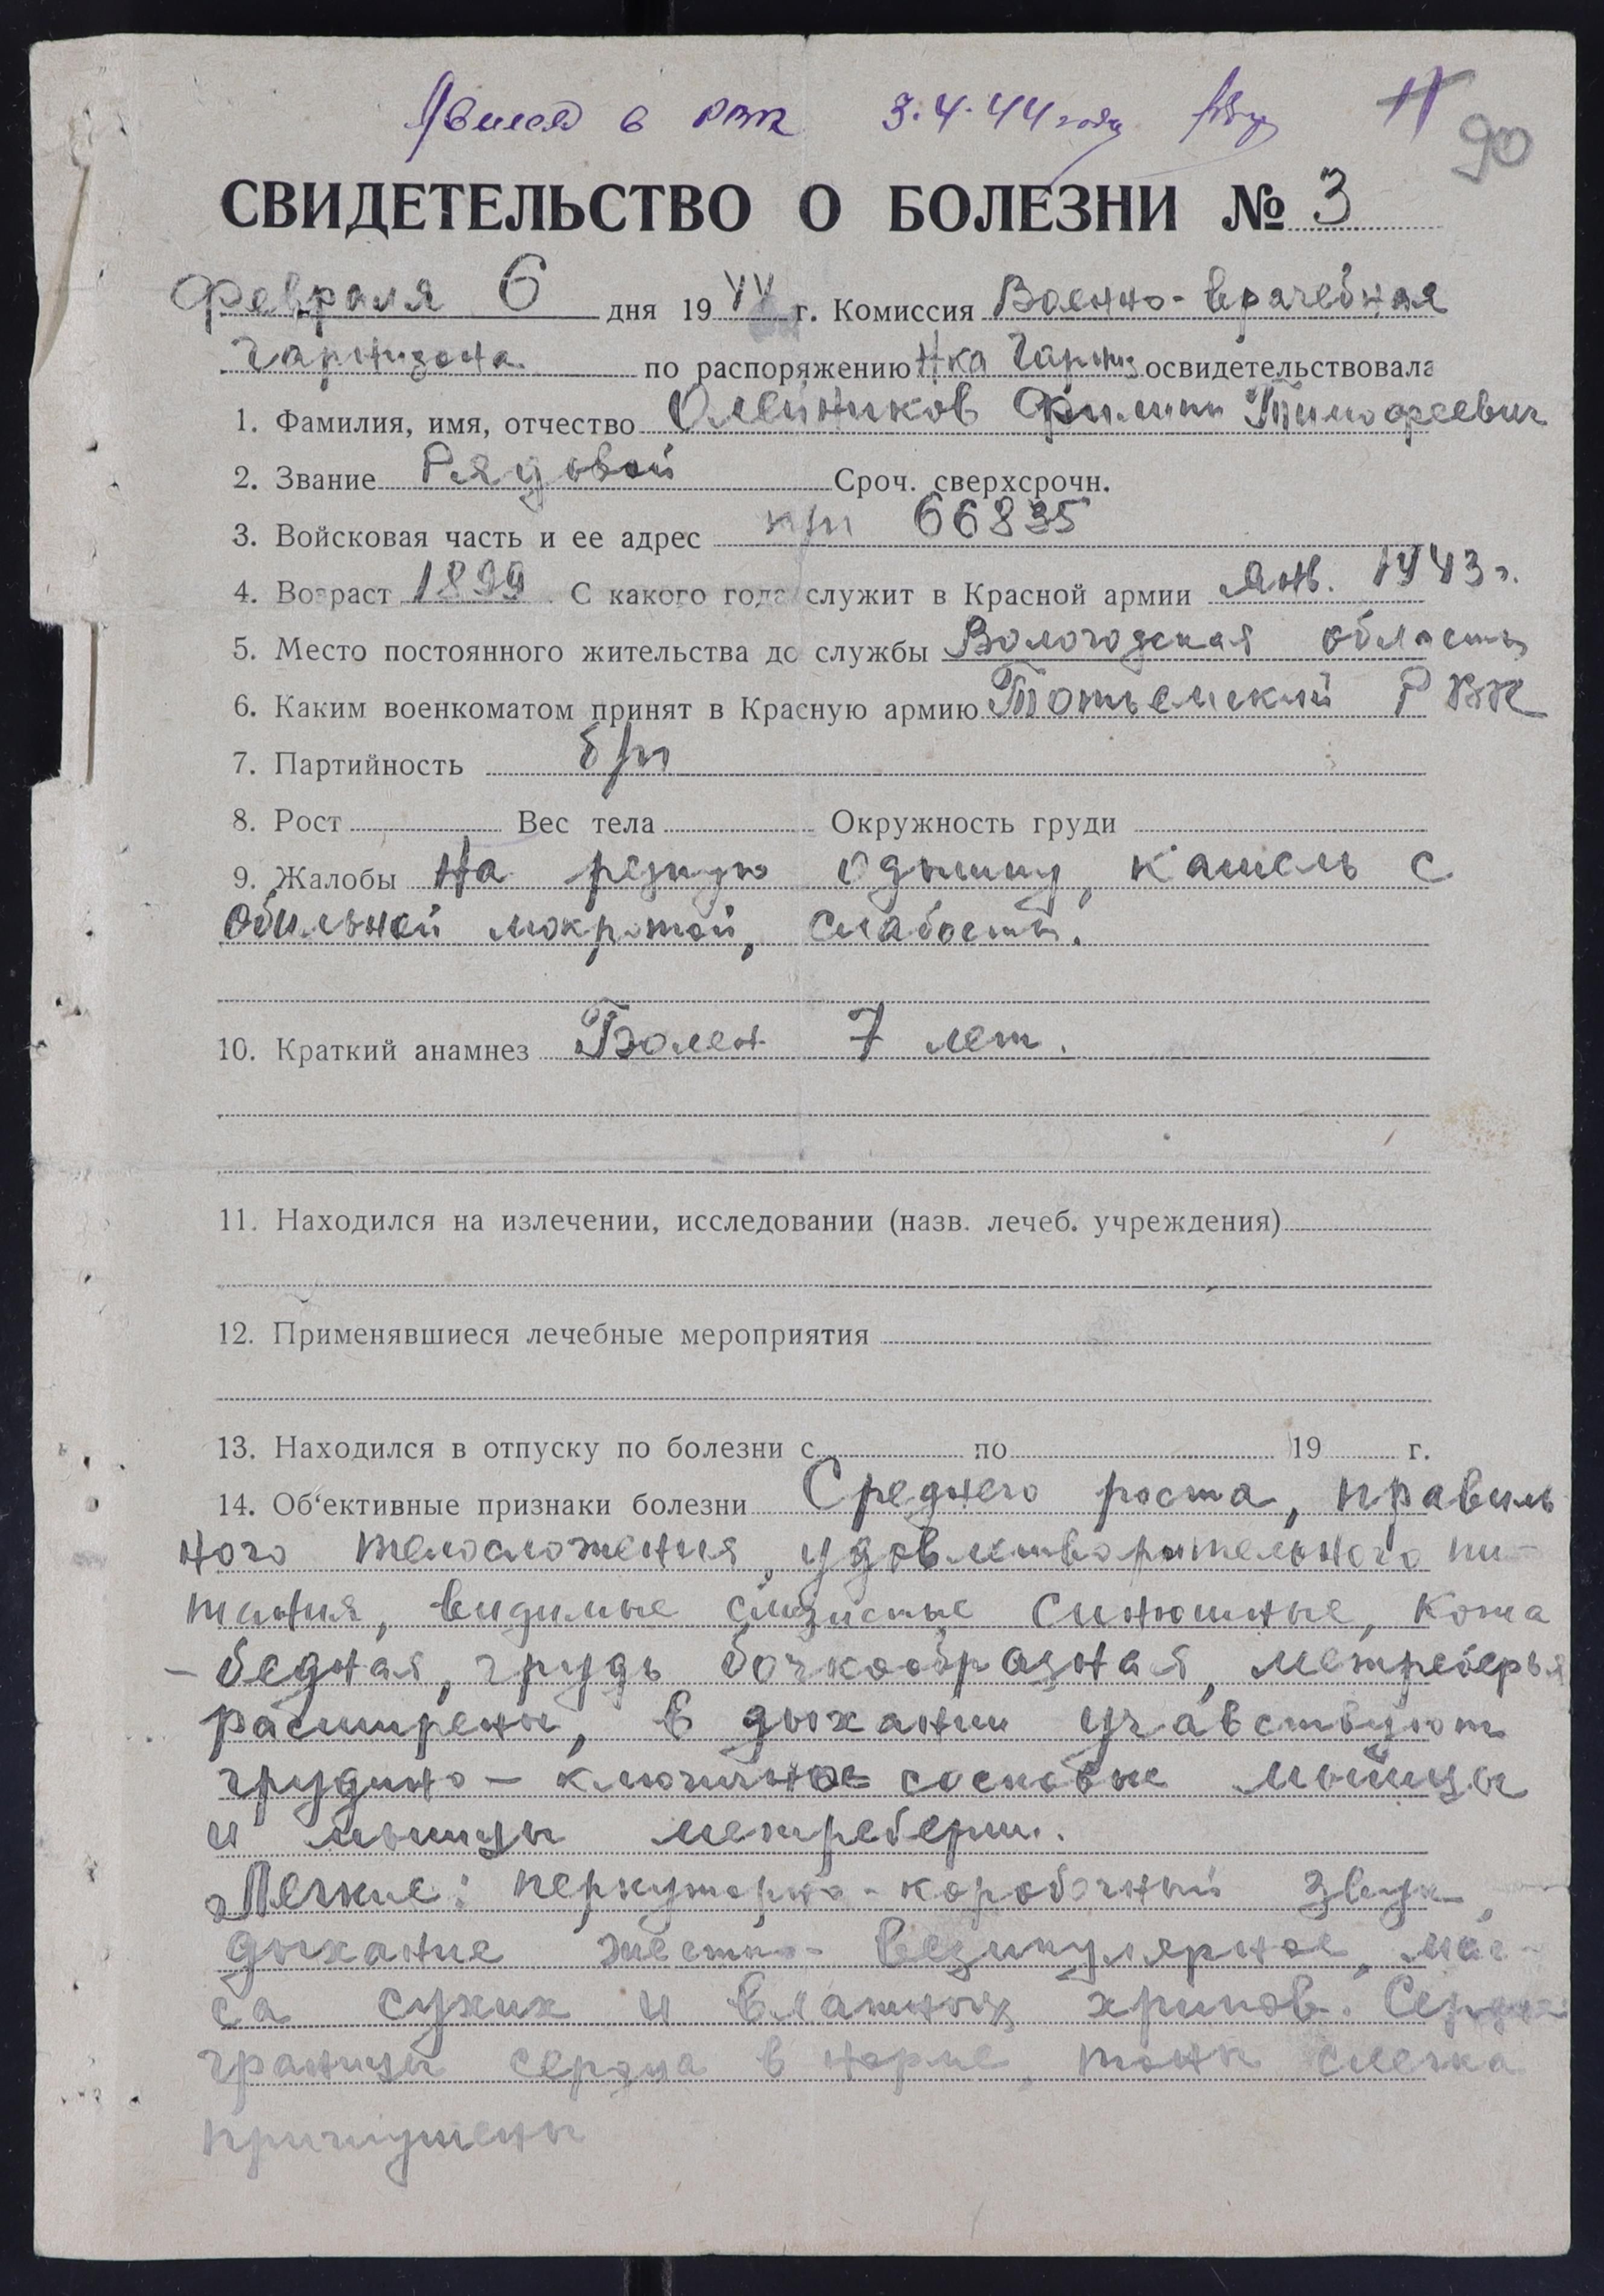 Явился в РВК 3.4.44 года
90
СВИДЕТЕЛЬСТВО О БОЛЕЗНИ № 3
Февраля 6 дня 1944 г. Комиссия Военно-врачебная
гарнизона по распоряжению Н-ка Гарниз освидетельствовала
1. Фамилия, имя, отчество Олейников Филипп Тимофеевич
2. Звание Рядовой Сроч. сверхсрочн.
3. Войсковая часть и ее адрес п/п 66835
4. Возраст 1899 С какого года служит в Красной армии Янв. 1943 г.
5. Место постоянного жительства до службы Вологодская область
6. Каким военкоматом принят в Красную армию Тотьемский РВК
7. Партийность б/п
8. Рост Вес тела Окружность груди
9. Жалобы На резкую одышку, кашель с
обильной мокротой, слабость.
10. Краткий анамнез Болен 7 лет.
11. Находился на излечении, исследовании (назв. лечеб. учреждения)
12. Применявшиеся лечебные мероприятия
13. Находился в отпуску по болезни с по 19 г.
14. Об‘ективные признаки болезни Среднего роста, правиль
ного телосложения, удовлетворительного пи-
тания, видимые слизистые синюшные, кожа
- бедная, грудь бочкообразная, межреберья
расширены, в дыхании учавствуют
грудино-ключично= сосковые мышцы
и мышцы межреберий.
Легкие: перкуторно-коробочный звук,
дыхание жестко-везикулярное, мас-
са сухих и влажных хрипов. Сердце
границы сердца в норме, тоны слегка
приглушены